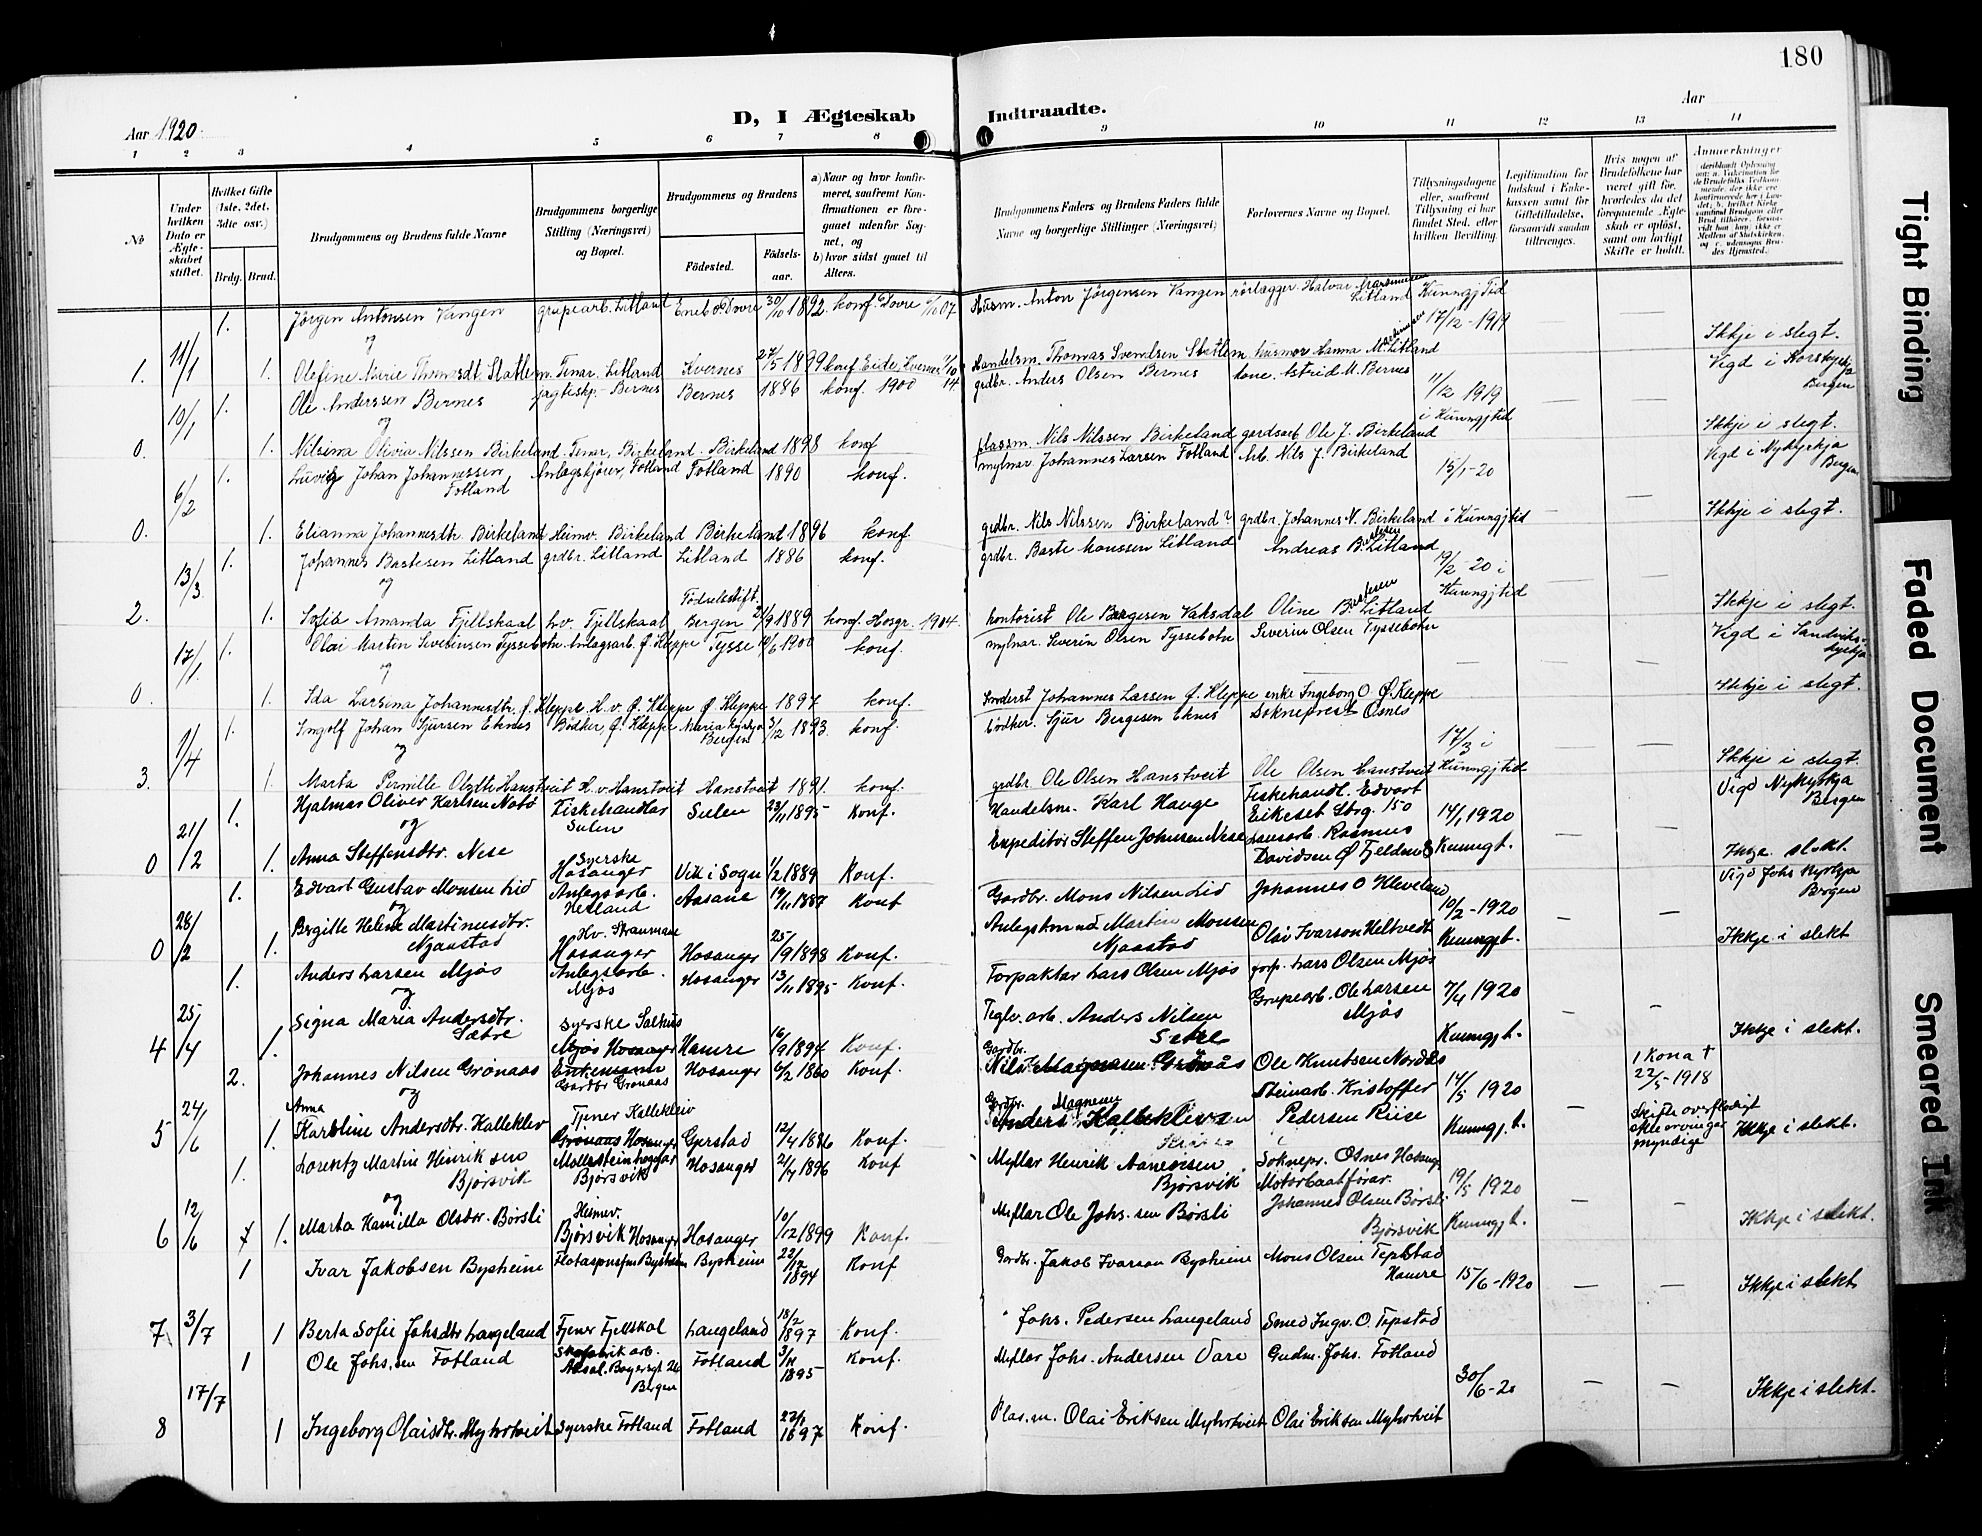 180
D, I Ægteskab Indtraadte.
Aar 1920. Aar
1 2 3 4 5 6 7 8 9 10 11 12 13 14
No
Under hvilken Dato er Ægteskabet stiftet.
Hvilket Gifte (1ste, 2det, 3die osv.)
Brdg. Brud.
Brudgommens og Brudens fulde Navne
Brudgommens borgerlige Stilling (Næringsvei) og Bopæl.
Brudgommens og Brudens
Fødested. Fødselsaar.
a) Naar og hvor konfirmeret, saafremt Konfirmationen er foregaaet udenfor Sognet, og
b) hvor sidst gaaet til Alters.
Brudgommens Faders og Brudens Faders fulde Navne og borgerlige Stillinger (Næringsvei)
Forlovernes Navne og Bopæl.
Tillysningsdagene eller, saafremt Tillysning ei har fundet Sted, efter hvilken Bevilling.
Legitimation for Indskud i Enkekassen samt for Giftetilladelse, forsaavidt saadan tiltrænges.
Hvis nogen af Brudefolkene har været gift før, hvorledes da det foregaaende Ægteskab er opløst, samt om lovligt Skifte er holdt.
Anmærkninger
1. Jørgen Antonsen Vangen grupearb. Litland Eneb. Dovre 30/10 1892. konf. Dovre 07 Husm. Anton Jörgensen Vangen rörlægger Halvar Litland Kunngj Tid
og 17/12-1919 Ikkje i slegt.
1. 11/1 1. Olefine Marie Thomasdt. Statlem Tenar. Litland Kvernes 27/5 1899 konf Eide, Kvernes 14 Handelsm. Thomas Svendsen Statlem husmor Hanna M. Litland Vigd i Korskyrkja Bergen
1. Ole Anderssen Bernes jagtiskp. Bernes Bernes 1886 konf. 1900 grdbr. Anders Olsen Bernes kone. Astrid M. Bernes 11/12 1919
10/1 og i Kunngjtid Ikkje i slegt.
0. 1. Nilsina Olivia Nilssen Birkeland Tenar, Birkeland. Birkeland 1898 konf plassm. Nils Nilssen Birkeland gardsarb Ole J. Birkeland Vigd i Nykyrkja Bergen
1. Luvig Johan Johannessen Fotland Anlægskjører, Fotland Fotland 1890 konf. mylnar. Johannes Larsen Fotland Arb. Nils J. Birkeland 15/1-20
6/2 Ikkje i slegt.
0. 1. Elianna Johannesdtr. Birkeland Heimv. Birkeland Birkeland 1896 konf. grdbr. Nils Nilssen Birkeland? grdbr. Johannes N. Birkeland i Kunngjtid
1. Johannes Bastesen Litland grdbr. Litland Litland 1886 konf. grdbr. Baste Monssen Litland Andreas B. Litland 19/2-20 i
13/3 og Fødselsstift. Kunngjtid Ikkje i slegt.
2. 1. Sofie Amanda Fjellskaal Hv. Fjellskaal Bergen 21/9 1889 konf. Hosgr. 1904 kontorist Ole Bergesen Vaksdal Oline B. Litland
1. Olai Martin Severinsen Tyssebotn Anlægsarb. Ø. Kleppe Tysse 19/6 1900 konf. mylnar. Severin Olsen Tyssebotn Severin Olsen Tyssebotn Vigd i Sandvikskyrkja
17/1 og Ikkje i slegt.
0. 1. Ida Larsina Johannesdtr. Ø. Kleppe H.v. Ø. Kleppe Ø. Kleppe 1897 konf. Johannes Larsen Ø. Kleppe enke Ingeborg O. Ø. Kleppe
1. Ingolf Johan Sjursen Eknes Bödker, Ø. Kleppe Maria Kyrkja Bergen 3/12 1893. konf. bødker. Sjur Bergesen Eknes Sokneprest Osnes 17/3 i
1/4 og Kunngjtid Ikkje i slegt.
3. 1. Marta Pernille Olsdtr Hanstveit H.v. Hanstveit Hanstveit 1891. konf. grdbr Ole Olsen Hanstveit Ole Olsen Hanstveit Vigd Nykyrkja Bergen
1. Hjalmar Oliver Karlsen Nobø Fiskehandlar Sulen Sulen 23/11 1895 Konf. Handelsm. Karl Hauge Fiskehandl. Edvart Eikeset Strg. 150 14/1 1920
21/2 og Kunngt. Ikkje. slekt
0 1. Anna Steffensdtr. Nese Syerske Hosanger Vik i Sogn 1/2 1889 Konf. Expeditør Steffen Johnsen Nese Lausarb. Rasmus Davidsen Ø Fjeldm. 8 Vigd Johs Kyrkja Bergen
1. Edvart Gustav Monsen Lid Anlegsarb. Hetland Aasane 19/11 1887 Konf Gardbr. Mons Nilsen Lid Johannes O Kleveland 10/2-1920
28/2 og Kunngjt. Ikkje i slekt
0 1. Bergitte Helene Martinusdtr. Mjaastad Hv. Straumane Hosanger Hosanger 25/9 1898 Konf. Martin Monsen Mjaastad Olai Ivarson Heltvedt
1. Anders Larsen Mjøs Anlegsarb. Mjøs Hosanger 13/11 1895 Konf. Torpaktar Lars Olsen Mjøs forp. Lars Olsen Mjøs 7/4 1920
25/4 og Grupearb. Ole Larsen Mjøs
4 1. Signa Maria Andersdtr. Sætre Syerske Salhus Mjøs Hosanger Hamre 16/9 1894 Konf. Teglv. arb. Anders Nilsen Setre Kunngjt. Ikkje i slekt.
2. Johannes Nilsen Grønaas Enkemann Gardbr Grønaas Hosanger 6/2 1860 Konf. Gardbr. Nils Magnusen Grønås Ole Knutsen Nordås 14/5 1920 1 Kona † 22/5-1918
24/6 og Steinarb. Kristoffer Pedersen Riise Skifte overflødigt alle arvingar myndige
5 1. Anna Karoline Andersdtr Kalleklev Tjener Kalleklev Grønaas Hosanger Gjerstad 12/4 1886 Konf. Gardbr. Anders Magnesen Kalleklev Kunngj. t. Ikkje i slekt.
1. Lorentz Martin Henriksen Bjørsvik Møllesteinhoggar Bjørsvik Hosanger 2/4 1896 Konf Myllar Henrik Aanensen Bjørsvik Soknepr. Osnes Hosanger 19/5 1920
12/6 og Motorbaatførar
6 7 1. Marta Kamilla Olsdtr. Børsli Heimev. Bjørsvik Hosanger Hosanger 10/12 1899 Konf. Myllar Ole Johs.sen Børsli Johannes Olsen Børsli Bjørsvik Kunngjt. Ikkje i slekt.
1 Ivar Jakobsen Bysheim Bysheim 22/12 1894 Konf Gardbr. Jakob Ivarson Bysheim Mons Olsen Tepstad Hamre 15/6-1920 Ikkje i slekt
7 3/7 1 Berta Sofie Johsdtr Langeland Tjener Fjellskal Langeland 18/2 1897 Konf. Johs. Pedersen Langeland Smed Ingv. O. Tepstad
1 Ole Johs.sen Fotland Skofabrik arb. Bergen Fotland 3/11 1895 Konf. Myllar Johs. Andersen Vare Gudm. Johs. Fotland
17/7 30/6-20 Ikkje i slekt.
8 1 Ingeborg Olaisdtr. Myhrtveit Syerske Fotland Fotland 22/1 1897 Konf. Plas.m. Olai Eriksen Myhrtveit Olai Eriksen Myhrtveit
Tight Binding
Faded Document
Smeared Ink